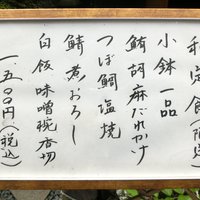 和定食
小鉢一品
鮪胡麻だれかけ
つぼ鯛塩焼
鯖煮おろし
白飯味噌椀香物
一、五〇〇円(税込)